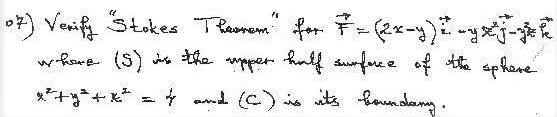 07) Verify "Stokes Theorem" for F⃗ = (2x-y)i⃗ - yz²j⃗ - y²zk⃗
where (S) is the upper half surface of the sphere
x² + y² + z² = 4 and (C) is its boundary.